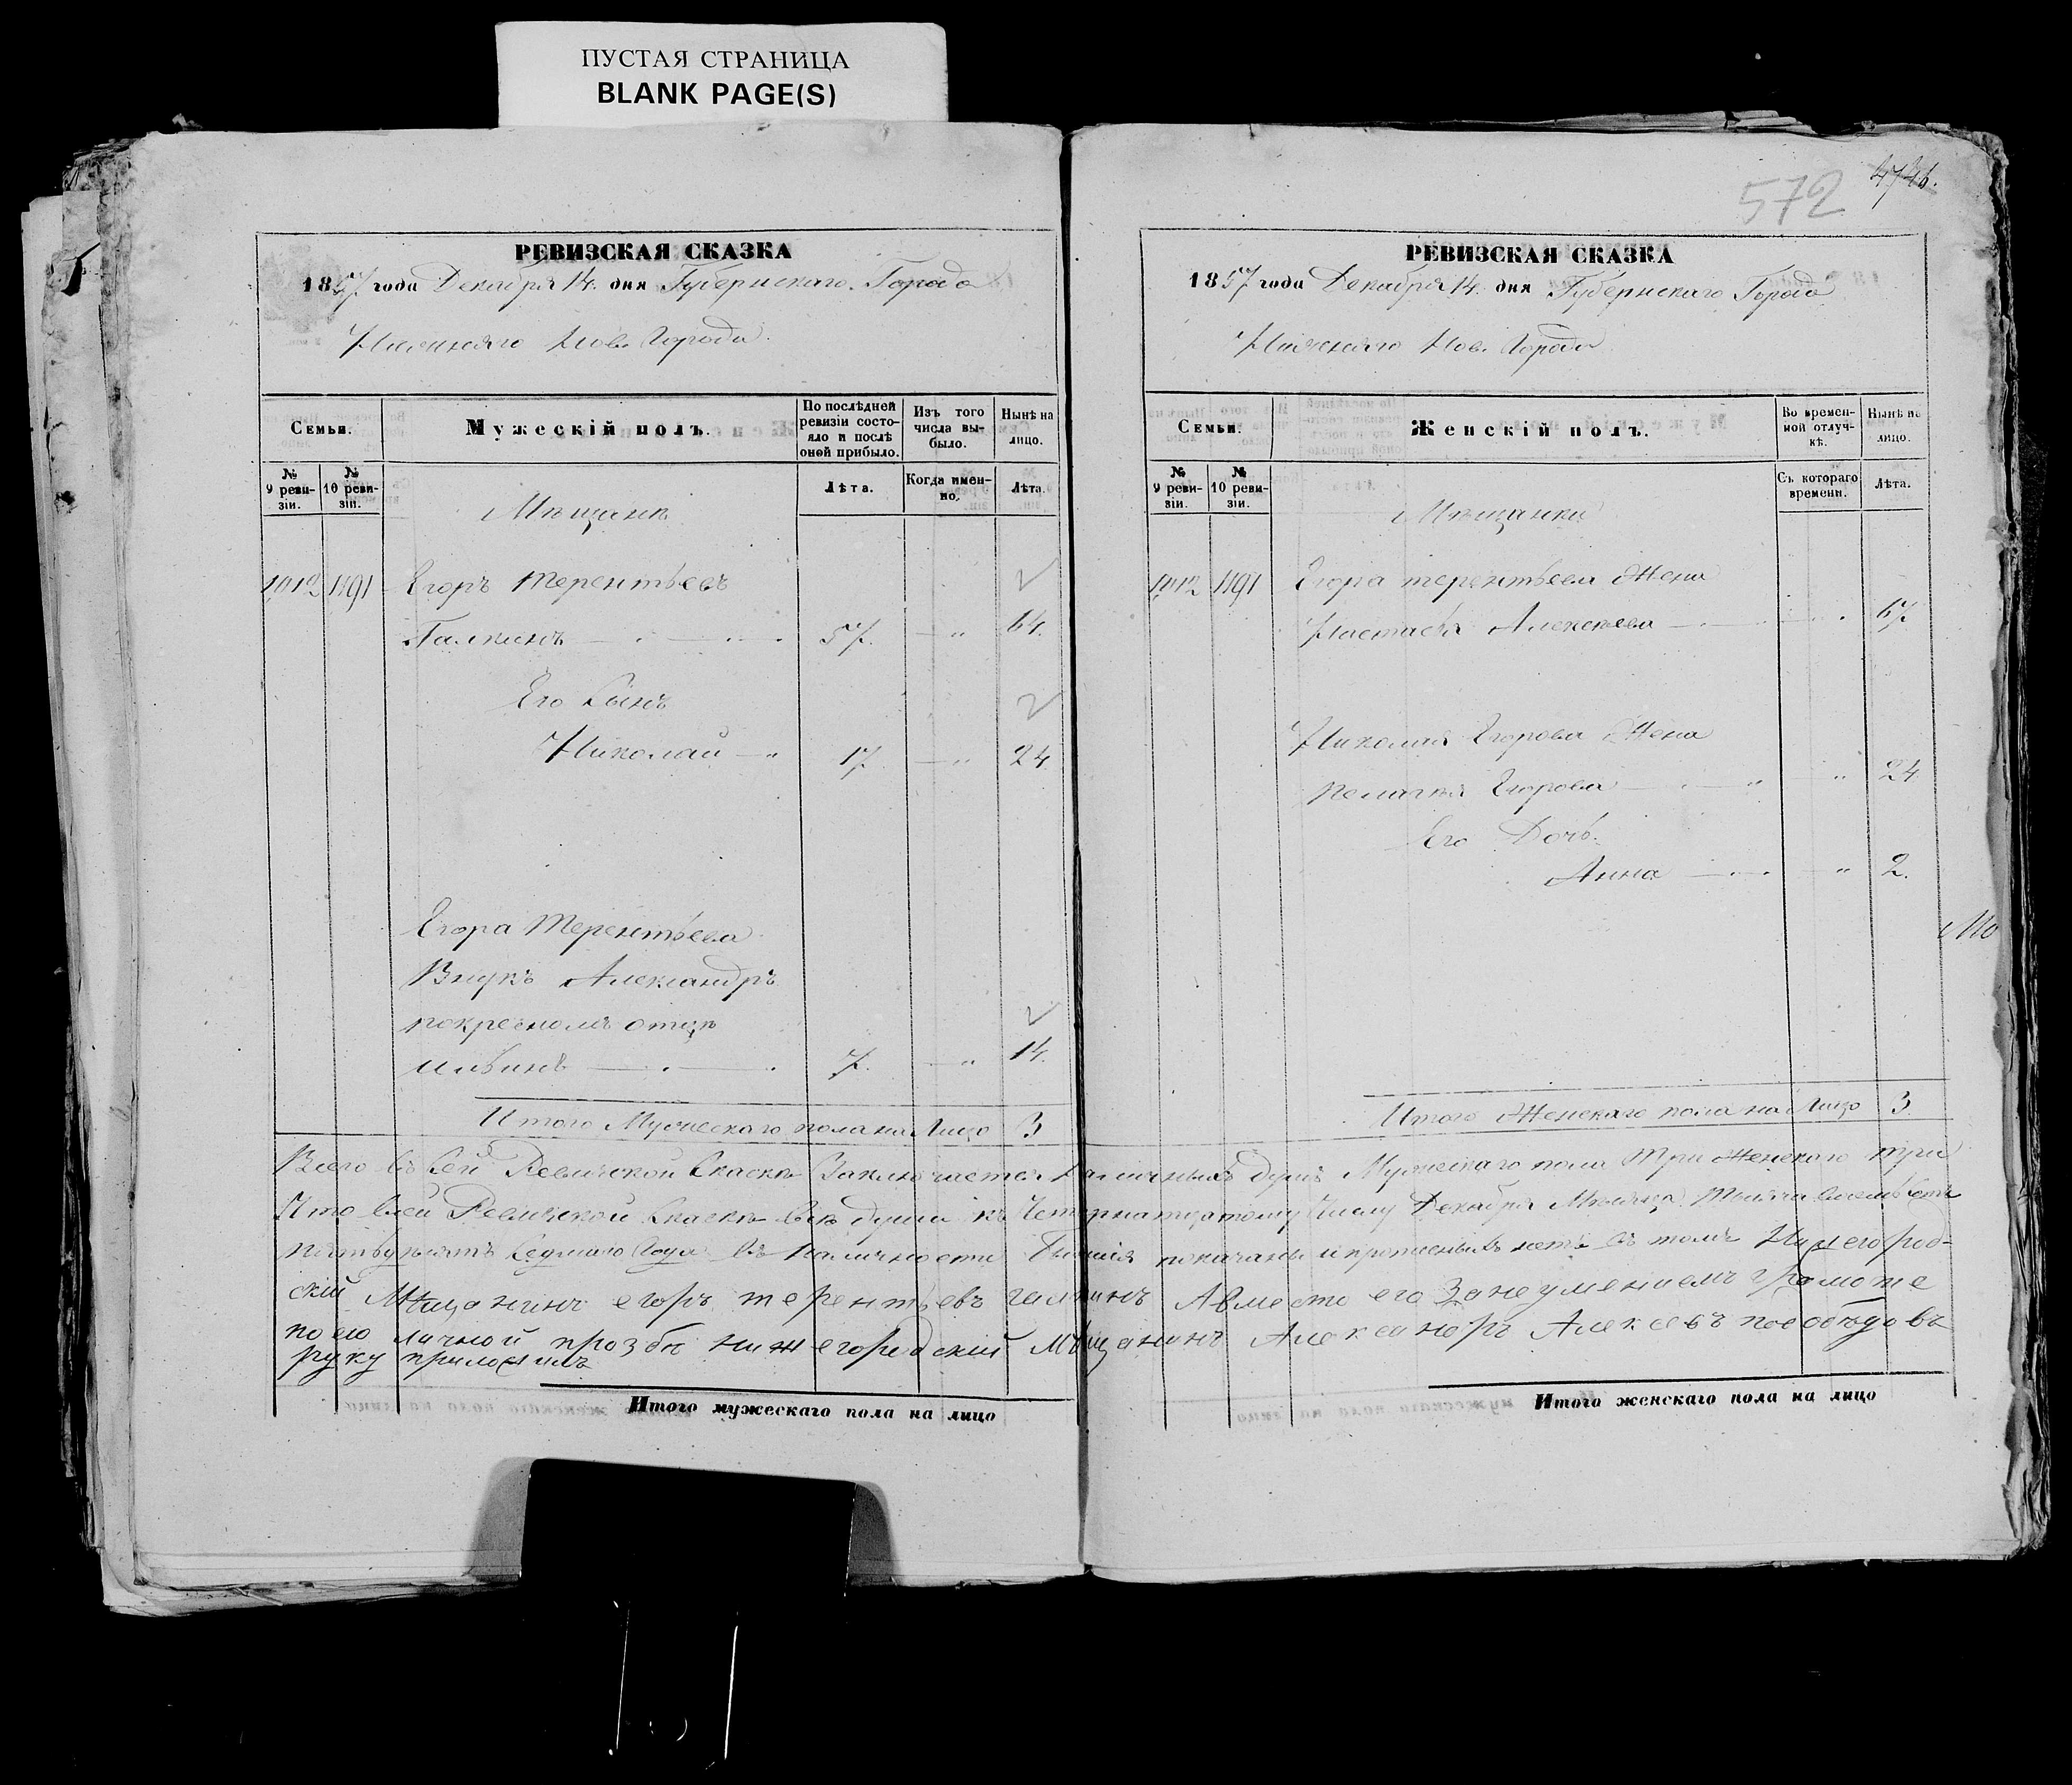 ПУСТАЯ СТРАНИЦА
BLANK PAGE(S)
РЕВИЗСКАЯ СКАЗКА
1857 года Декабря 14. дня Губернскаго Города
Нижняго Нов. Города.
Семьи.
Мужескій полъ.
По послѣдней ревизіи состояло и послѣ оной прибыло.
Изъ того числа выбыло.
Нынѣ на лицо.
№ 9 ревизіи.
№ 10 ревизіи.
Лѣта.
Когда именно.
Лѣта.
Мещане
1491 Егоръ Терентьевъ
Галкинъ 57. 64.
Его Сынъ
Николай 17 24.
Егора Терентьева
Внукъ Александръ
покресномъ отце
7. 14.
Итого Мужескаго пола на Лицо 3
572
РЕВИЗСКАЯ СКАЗКА
1857 года Декабря 14. дня Губернскаго Города
Нижняго Нов. Города
Семьи.
Женскій полъ.
Во временной отлучкѣ.
Нынѣ на лицо.
№ 9 ревизіи.
№ 10 ревизіи.
Съ котораго времени.
Лѣта.
Мещанки
1491 Егора терентьева Жена
Настасья Алексеева 67
Николая Егорова Жена
Пелагея Егорова 24
Его Дочь.
Анна 2.
Итого Женскаго пола на Лицо 3.
Всего въ Сей Ревижской Скаске Заключается наличныхъ душъ Мужескаго пола три Женского три
Что всей Ревижской Скаске все души къ Четырнатцатому Числу Декабря Месяца Тысяча восемьсотъ
пятьдесятъ Седмаго Года въ наличности бывшия показаны и прописныхъ нетъ въ томъ Нижегород-
скій Мещанинъ егоръ терентьевъ галкинъ Авместо его Занеумениемъ грамоте
по ево личной прозбе нижегородский Мещанинъ Александръ Алексеевъ
руку приложилъ
Итого мужескаго пола на лицо
Итого женскаго пола на лицо